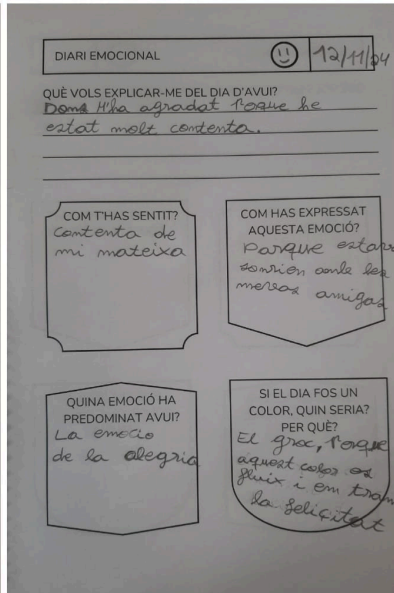 DIARI EMOCIONAL
12/11/24
QUÈ VOLS EXPLICAR-ME DEL DIA D'AVUI?
Dons M'ha agradat Porque he
estat molt contenta.
COM T'HAS SENTIT?
Contenta de
mi mateixa
COM HAS EXPRESSAT
AQUESTA EMOCIÓ?
Parque estava
sonrien amb les
meves amigas
QUINA EMOCIÓ HA
PREDOMINAT AVUI?
La emocio
de la alegria
SI EL DIA FOS UN
COLOR, QUIN SERIA?
PER QUÈ?
El groc, Porque
aquest color es
fluix i em tran
la feliçitat